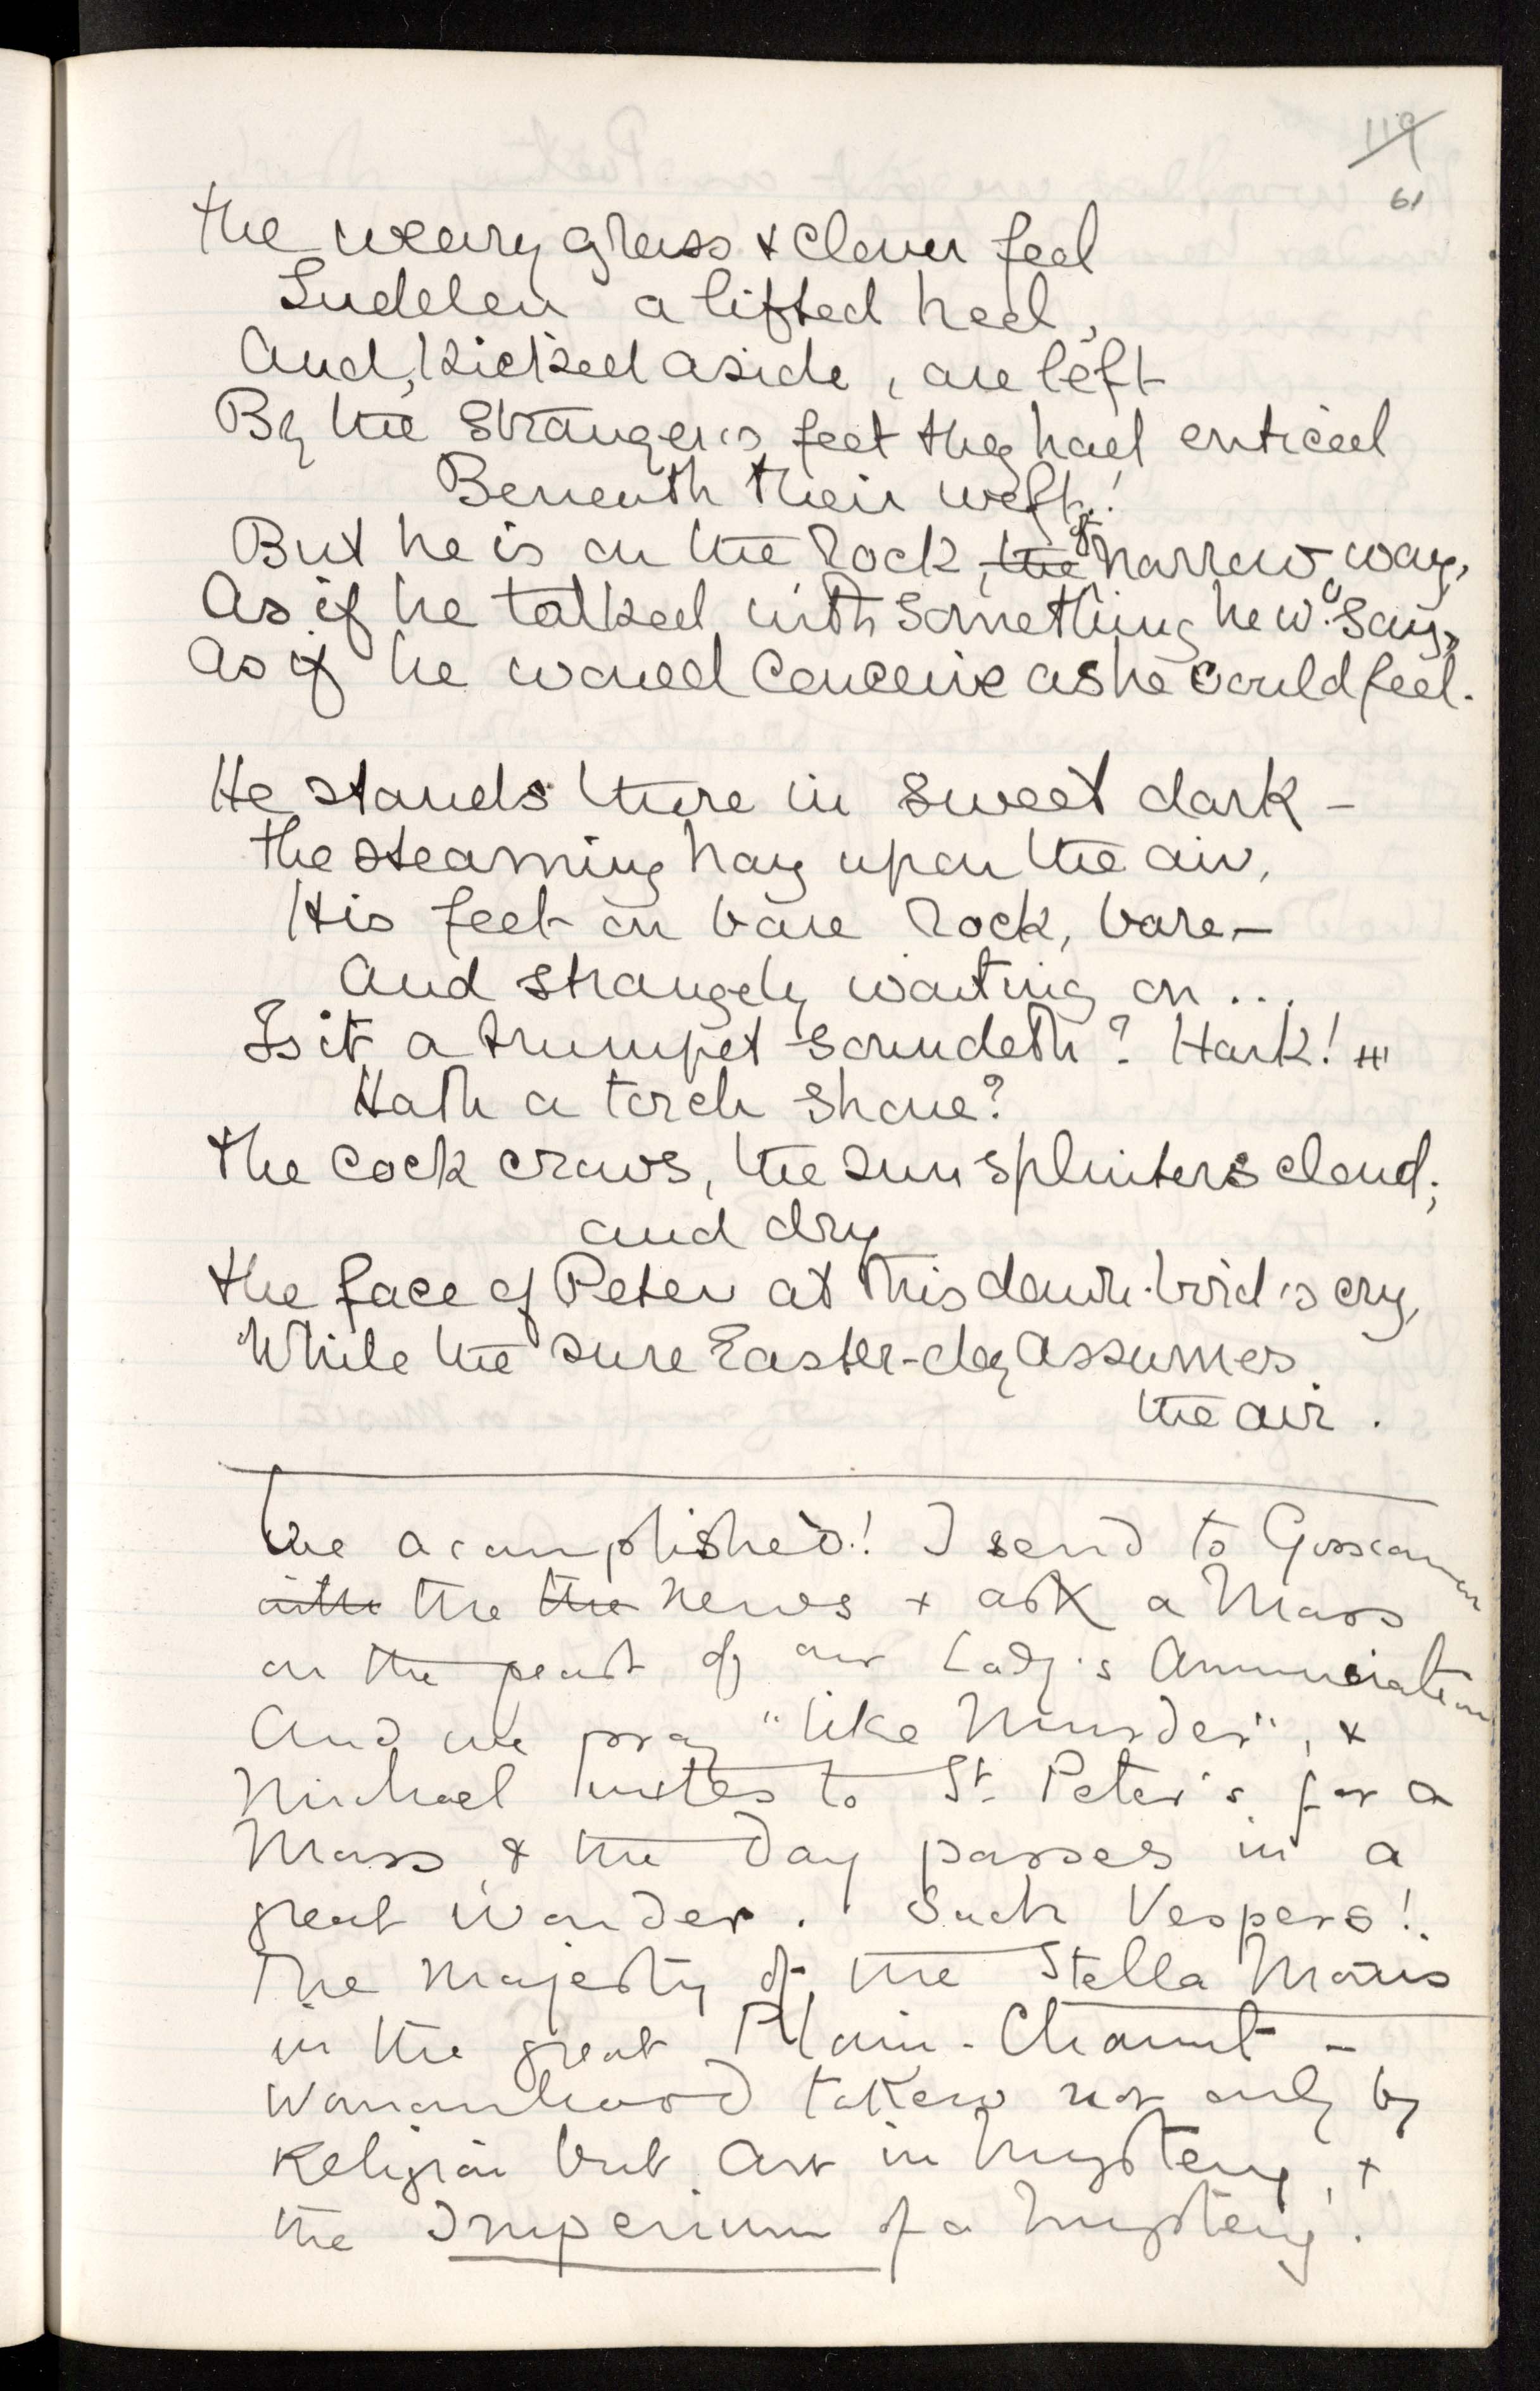 119
61
The weary grass & clover feel
Sudden a lifted heel,
And, kicked aside, are left
By the stranger's feet they had enticed
Beneath their weft!
But he is on the Rock, the of narrow way,
As if he talked with something he wd. say,
As if he would conceive as he could feel.
He stands there in sweet dark –
The steaming hay upon the air,
His feet on bare Rock, bare –
And strangely waiting on ...
Is it a trumpet soundeth? Hark!
Hath a torch shone?
The cock crows, the sun splinters cloud;
and dry
The face of Peter at this dawn-bird's cry,
While the sure Easter-day assumes
the air.
We accomplished! I send to Gosscannon
with the the news & ask a Mass
on the feast of our Lady's Annunciation
And we pray "like Murder", &
Michael writes to St. Peter's for a
Mass, & the day passes in a
great wonder. Such Vespers!
The majesty of the Stella Maris
in the great Plain-Chaunt –
Womanhood taken not only by
Religion but Art in Mystery, &
the Imperium of a Mystery!